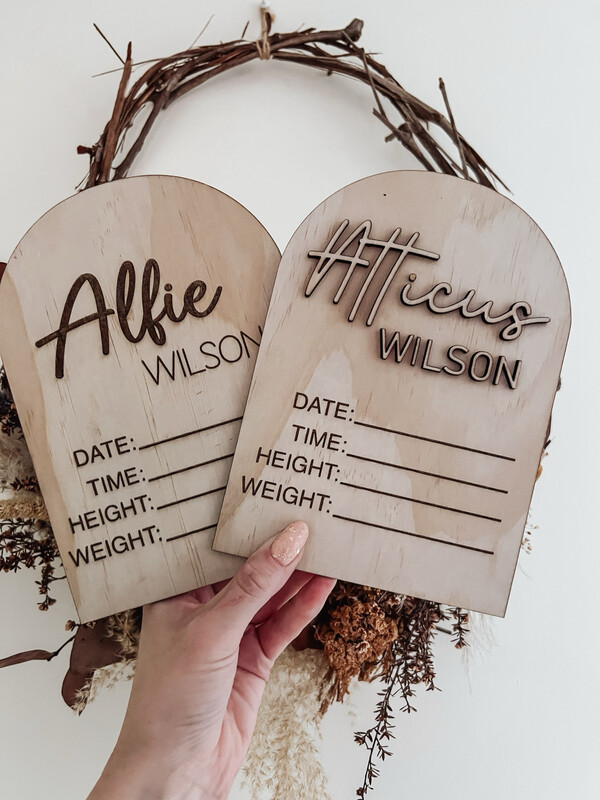 Alfie
WILSON
DATE:
TIME:
HEIGHT:
WEIGHT:
Atticus
WILSON
DATE:
TIME:
HEIGHT:
WEIGHT: